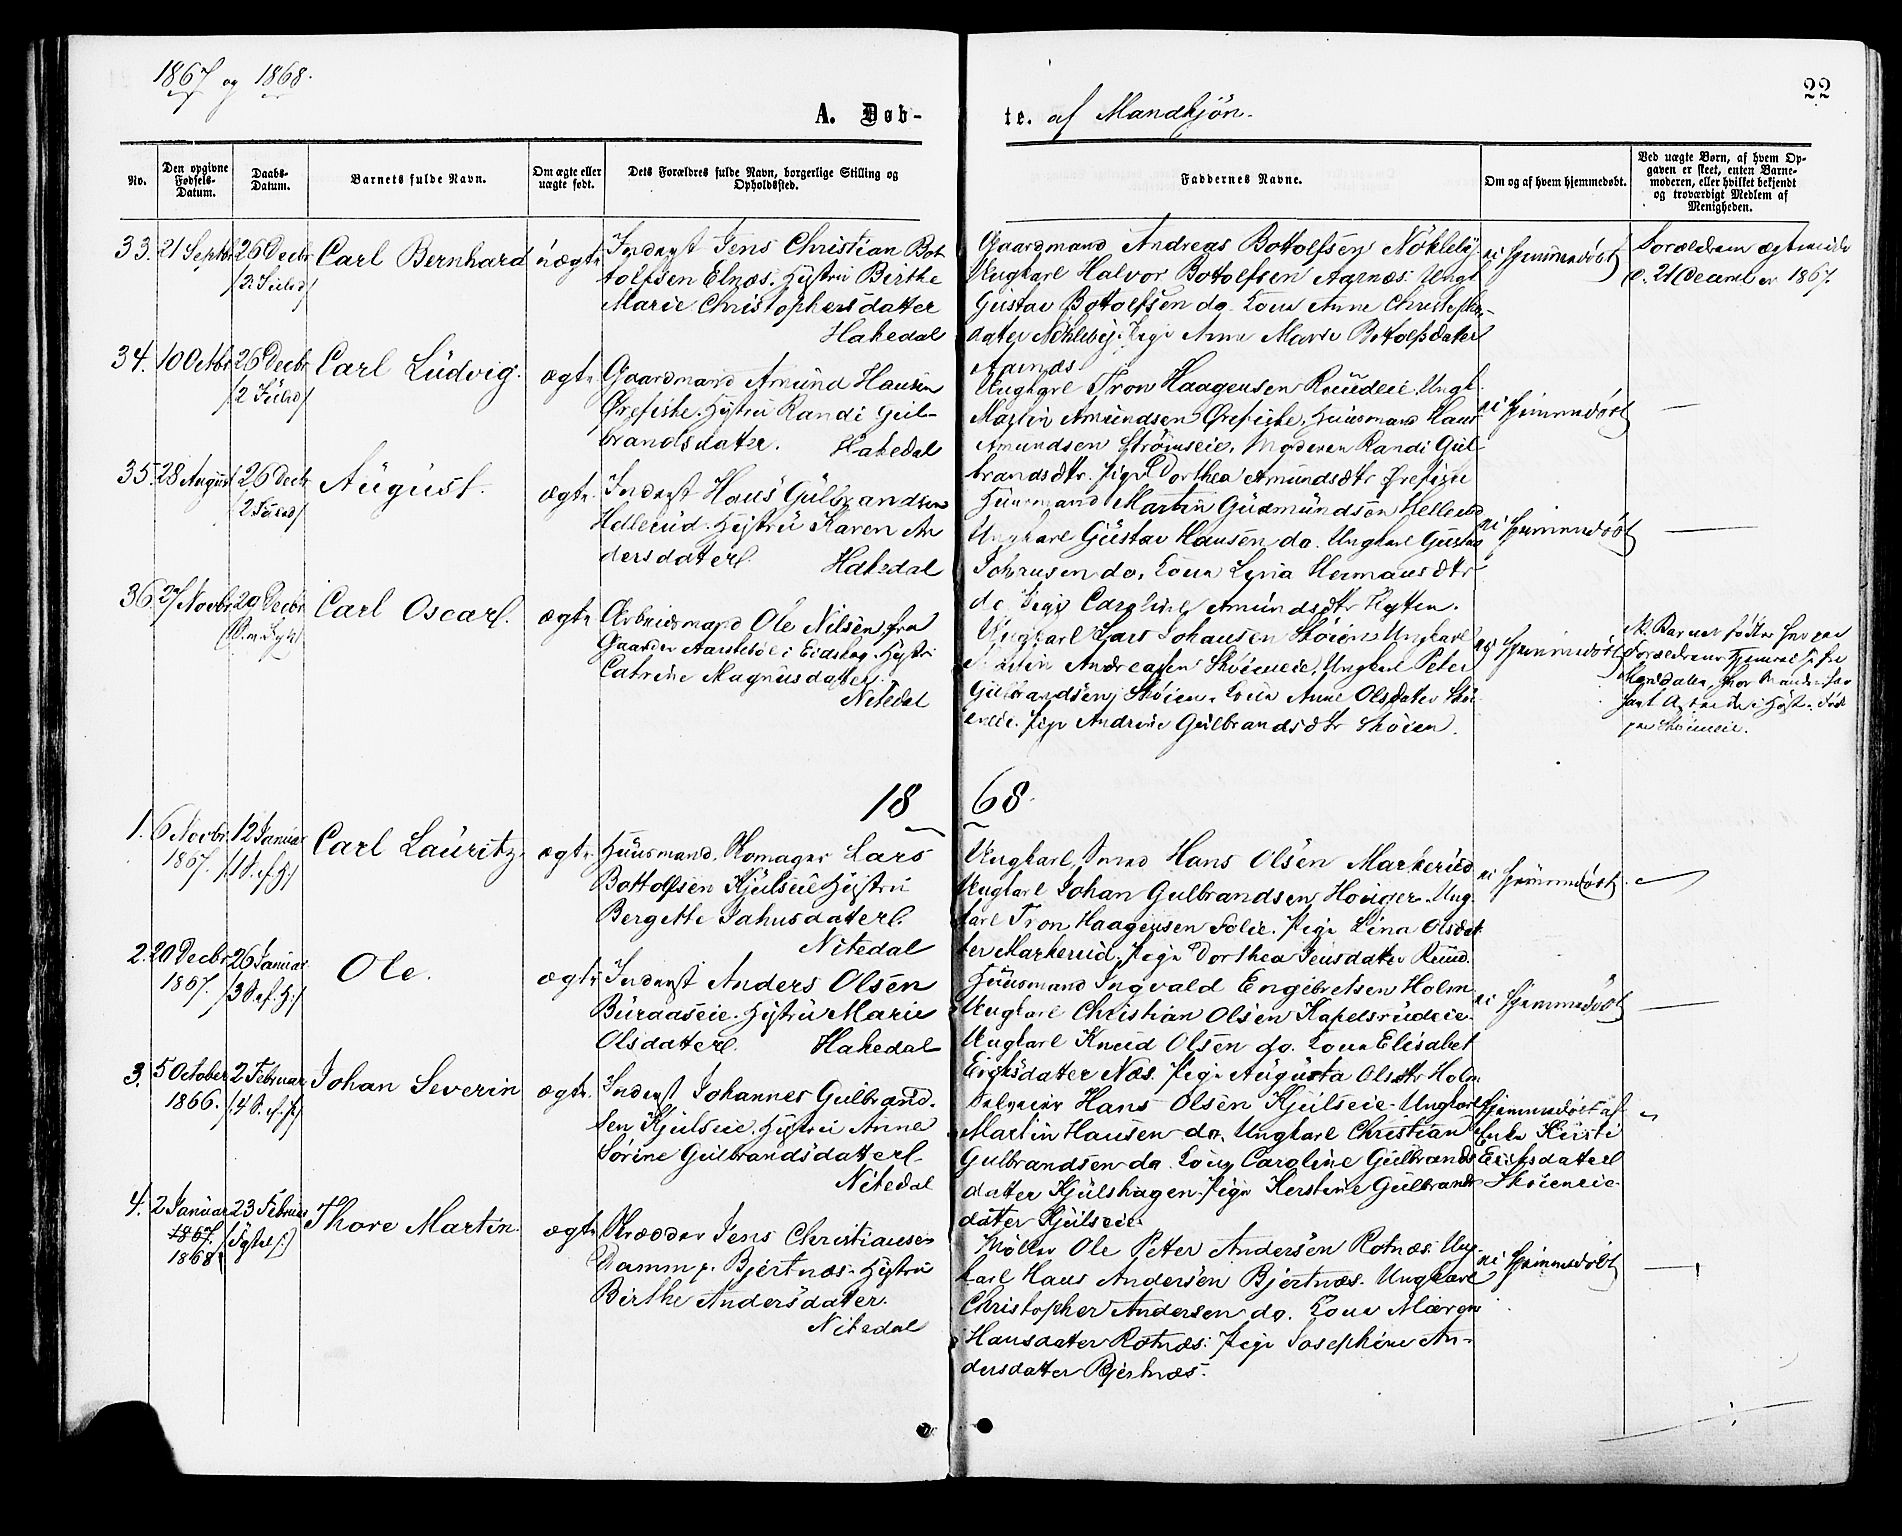 1867 og 1868.
22
A. Døb-
te. af Mandkjøn.
No.
Den opgivne Fødsels-Datum.
Daabs-Datum.
Barnets fulde Navn.
Om ægte eller uægte født.
Dets Forældres fulde Navn, borgerlige Stilling og Opholdssted.
Faddernes Navne.
Om og af hvem hjemmedøbt.
Ved uægte Børn, af hvem Op-
gaven er skeet, enten Barne-
moderen, eller hvilket bekjendt
og troværdigt Medlem af
Menigheden.
33. 21 Septbr 26 Decbr Carl Bernhard uægte Inderst Jens Christian Bot
tolfsen Elnæs. Hustru Birthe
Marie Christophersdatter
Hakedal
Gaardmand Andreas Bottolfsen Nökleby
Ungkarl Halvor Bottolfsen Aarnæs. Ungk
Gustav Bottolfsen do. Kone Anne Christophers-
datter Nökleby. Pige Anne Marie Bottolfsdatter
Aarnæs
ei hjemmedøbt
Forældrene ægteviede
d. 21 Decembr 1867.
34. 10 Octbr 26 Decbr Carl Ludvig. ægte
/2 Juled/
Gaardmand Amund Hansen
Ørefiske. Hustru Randi Gul-
brandsdatter. Hakedal
Ungkarl Tron Haagensen Ruudeie. Ungk.
Martin Amundsen Ørefiske, Huusmand Hans
Amundsen Strömseie, Moderen Randi Gul-
brandsdtr. Pige Dorthea Amundsdtr Ørefiske
ei hjemmedøbt
35. 28 August 26 Decbr August. ægte
/2 Juled/
Inderst Hans Gulbrandsen
Hellerud. Hustru Karen An
dersdatter. Hakedal
Huusmand Martin Gudmundsen Hellerud
Ungkarl Gustav Hansen do. Ungkarl Gustav
Johnsen do, Kone Lina Hermansdtr
do Pige Caroline Amundsdtr Hytten.
ei hjemmedøbt
36. 27 Novbr 29 Decbr Carl Oscar. ægte
Arbeidsmand Ole Nilsen fra
Gaarden Aarstsöl i Eidskog. Hustru
Catrine Magnusdatter
Nitedal
Ungkarl Lars Johansen Skøien. Ungkarl
Martin Andreasen Skøieneie, Ungkarl Peter
Gulbrandsen Skøien. Kone Anne Olsdatter Skøi-
eneie. Pige Andrine Gulbrandsdtr Skøien.
ei hjemmedøbt
paa Skøieneie.
18 68.
1. 6 Novbr 12 Januar Carl Lauritz. ægte
1867.
Huusmand, Skomager Lars
Bottolfsen Kjulseie Hustru
Bergette Jahnsdatter.
Nitedal
Ungkarl, Smed Hans Olsen Markerud
Ungkarl Johan Gulbrandsen Houger. Ung-
karl Tron Haagensen Solie. Pige Lina Olsdat
ter Markerud. Pige Dorthea Jensdatter Ruud.
ei hjemmedøbt.
2. 20 Decbr 26 Januar Ole. ægte
1867.
Inderst Anders Olsen
Buraaseie. Hustru Marie
Olsdatter. Hakedal
Huusmand Ingvald Engebretsen Holm
Ungkarl Christian Olsen Kapelsrudeie
Ungkarl Knud Olsen do. Kone Elisabet
Eriksdatter Næs. Pige Augusta Olsdtr Holm
ei hjemmedøbt
3. 5 October 2 Februar Johan Severin ægte
1866.
Inderst Johannes Gulbrand-
sen Kjulseie. Hustru Anne
Sørine Gulbrandsdatter.
Nitedal
Selveier Hans Olsen Kjulseie. Ungkarl
Martin Hansen do. Ungkarl Christian
Gulbrandsen do. Kone Caroline Gulbrands
datter Kjulshagen. Pige Kerstine Gulbrands
datter Kjulseie.
Hjemmedøbt af
Enke Kirsti
Eriksdatter
Skøieneie.
4. 2 Januar 23 Februar Thore Martin. ægte
1867.
1868.
Skrædder Jens Christiansen
Damm p. Bjertnæs. Hustru
Birthe Andersdatter.
Nitedal
Møller Ole Peter Andersen Rotnæs. Ung
karl Hans Andersen Bjertnæs. Ungkarl
Christopher Andersen do. Kone Maren
Hansdatter Rotnæs. Pige Josephine An-
dersdatter Bjertnæs.
ei hjemmedøbt